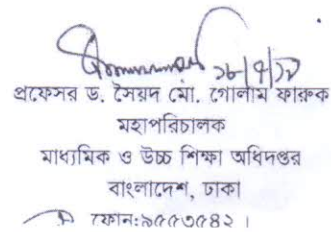 ১৮/৭/১৯
প্রফেসর ড. সৈয়দ মো. গোলাম ফারুক
মহাপরিচালক
মাধ্যমিক ও উচ্চ শিক্ষা অধিদপ্তর
বাংলাদেশ, ঢাকা
ফোন:৯৫৫৩৫৪২ ।